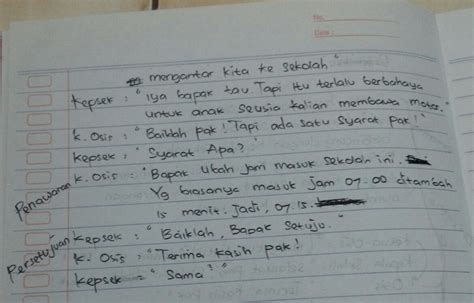 No.
Date :
mengantar kita ke sekolah"
Kepsek : "Iya bapak tau. Tapi itu terlalu berbahaya
untuk anak seusia kalian membawa motor."
K. Osis : "Baiklah pak! Tapi ada satu syarat pak!"
Kepsek : "Syarat Apa?"
Penawaran K. Osis : "Bapak Ubah jam masuk sekolah ini.
Yg biasanya masuk jam 07.00 ditambah
15 menit. Jadi, 07.15.
Persetujuan Kepsek : "Baiklah, Bapak Setuju."
K. Osis : "Terima kasih pak!
Kepsek : "Sama2"